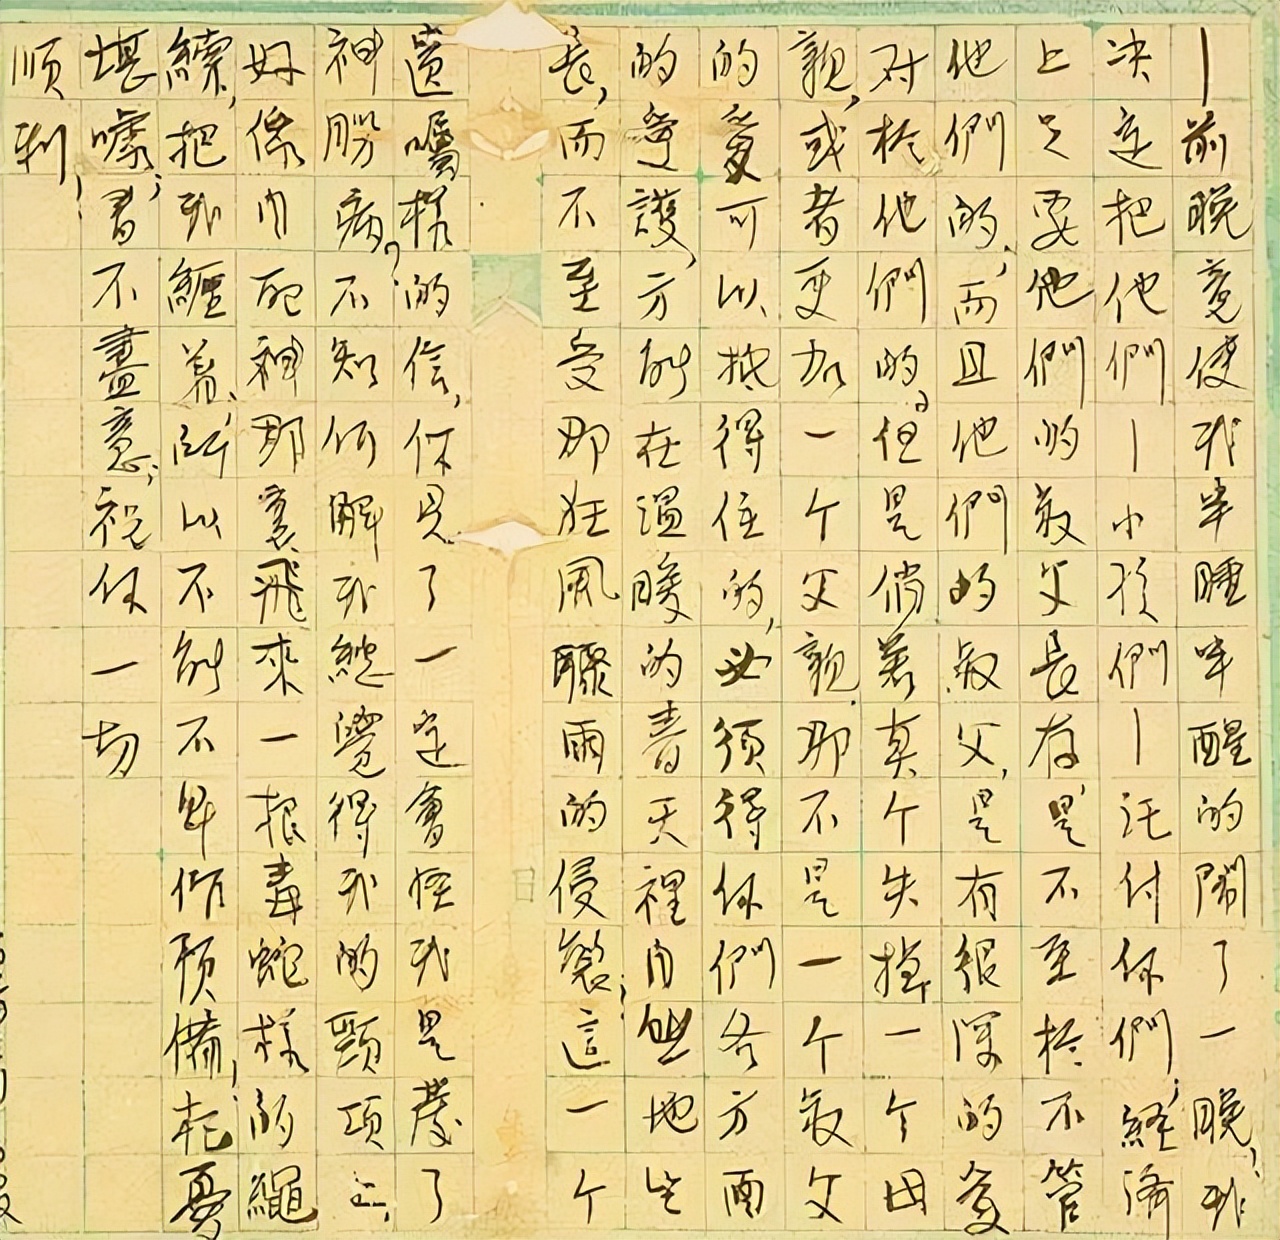 —前晚竟使我半睡半醒的鬧了一晚,我
决定把他們—小孩們—託付你們;經濟
上只要他們的叔父長存,是不至於不管
他們的,而且他們的叔父,是有很深的愛
对於他們的。但是倘若真个失掉一个母
親,或者更加一个父親,那不是一个叔父
的愛可以抵得住的,必須得你們各方面
的愛護,方能在溫暖的春天裡自然地生
長,而不至受那狂風驟雨的侵襲;這一个
遺囑樣的信,你見了一定會怪我是發了
神經病?不知何解我總覺得我的頸項上,
好像自死神那裏飛來一根毒蛇樣的繩
索,把我纏着,所以不能不早作預備,杞憂
堪嚎;書不盡意;祝你一切
順利!
日